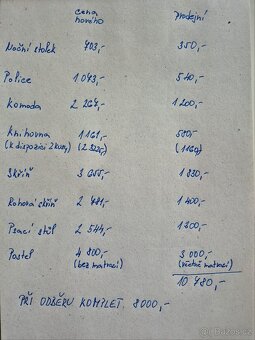 cena nového prodejní
Noční stolek 703,- 350,-
Police 1 043,- 540,-
Komoda 2 264,- 1 200,-
Knihovna 1 161,- 580,-
(k dispozici 2 kusy) (2 322,-) (1160,-)
Skříň 3 655,- 1 830,-
Rohová skříň 2 781,- 1 400,-
Psací stůl 2 544,- 1 300,-
Postel 4 800,- 3 000,-
(bez matrací) (včetně matrací)
10 480,-
PŘI ODBĚRU KOMPLET. 8000,-